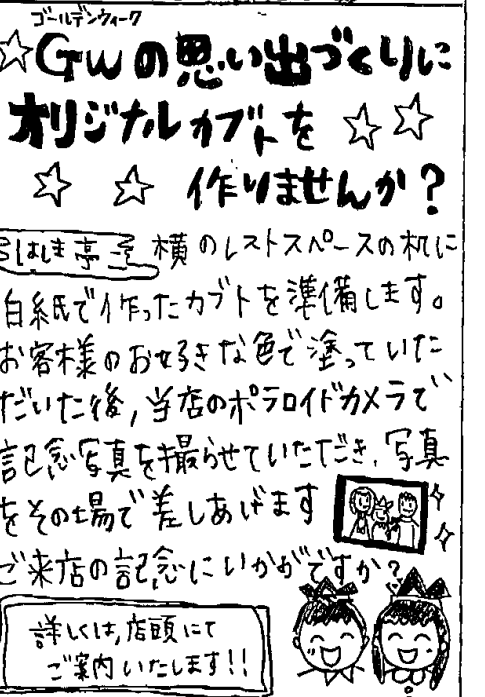 ゴールデンウィーク
GWの思い出づくりに
オリジナルカブトを
作りませんか?
はしま亭 横のレストスペースの机に
白紙で作ったカブトを準備します。
お客様のお好きな色で塗っていた
だいた後,当店のポラロイドカメラで
記念写真を撮らせていただき、写真
をその場で差しあげます
ご来店の記念にいかがですか?
詳しくは,店頭にて
ご案内いたします!!